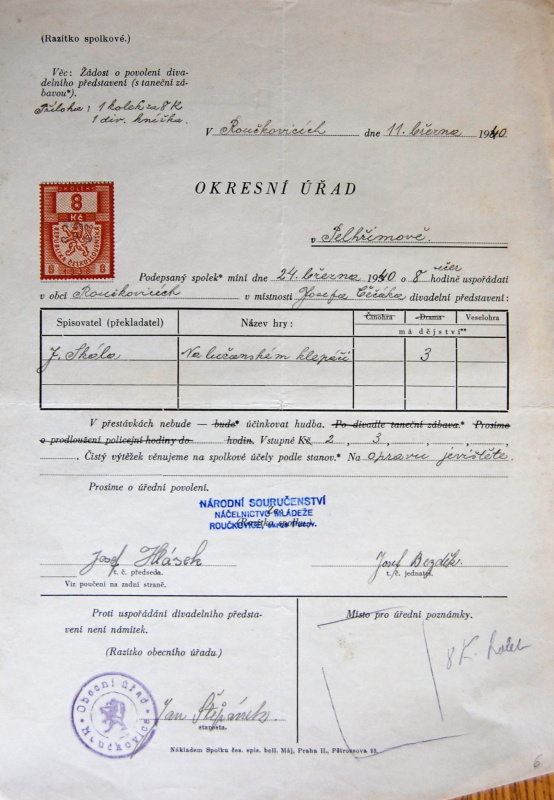 (Razítko spolkové.)
Věc: Žádost o povolení diva-
delního představení (s taneční zá-
bavou*).
Příloha: 1 kolek za 8 K
1 div. knížka.
V Roučkovicích dne 11. března 1940
KOLEK
8
Kč
REPUBLIKA ČESKOSLOVENSKÁ
8 8
OKRESNÍ ÚŘAD
v Pelhřimově.
Podepsaný spolek* míní dne 24. března 1940 o 8 hodině večer uspořádati
v obci Roučkovicích v místnosti Josefa divadelní představení:
Spisovatel (překladatel) Název hry: Činohra Drama Veselohra
má dějství**
J. Skála Na lučanském klepáči 3
V přestávkách nebude — bude* účinkovat hudba. Po divadle taneční zábava.* Prosíme
o prodloužení policejní hodiny do hodin. Vstupné Kč 2, 3, , , , ,
. Čistý výtěžek věnujeme na spolkové účely podle stanov.* Na opravu jeviště.
Prosíme o úřední povolení.
NÁRODNÍ SOURUČENSTVÍ
NÁČELNICTVO MLÁDEŽE
ROUČKOVICE,
(Razítko spolku).
Josef Hlásek Josef Bezděk.
t. č. předseda. t. č. jednatel.
Viz poučení na zadní straně.
Proti uspořádání divadelního předsta-
vení není námitek.
(Razítko obecního úřadu.)
Místo pro úřední poznámky.
8 K. kolek
Obecní úřad
Roučkovice
Jan Štěpánek
starosta.
Nákladem Spolku čes. spis. bell. Máj, Praha II., Pštrossova 19.
6